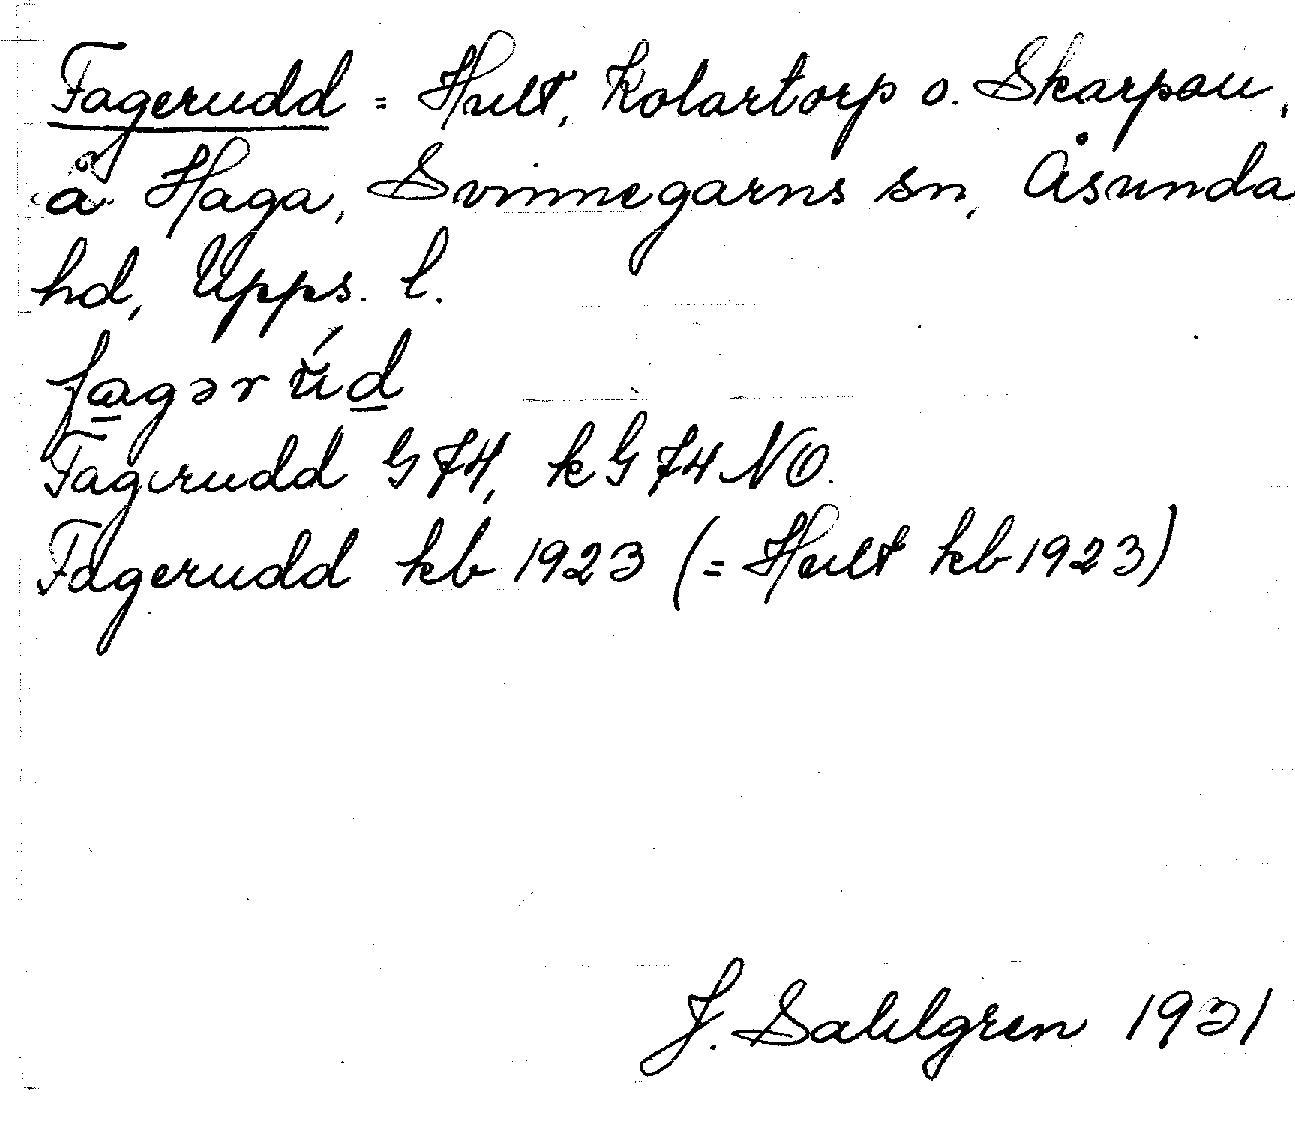 Fagerudd = Hult, Kolartorp o. Skarpau,
å Haga, Svinnegarns sn, Åsunda
hd, Upps. l.
fagər ŭ́d
Fagerudd G 74, k G 74 NO.
Fagerudd kb 1923 (= Hult kb 1923)
J. Sahlgren 1931